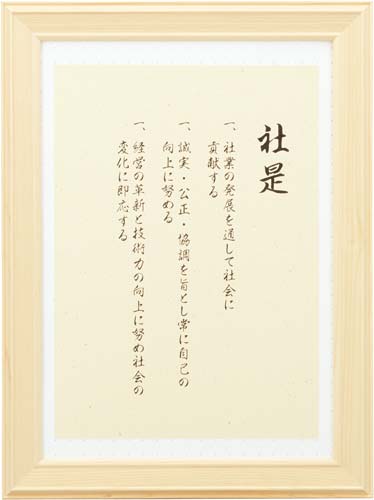 社是
一、社業の発展を通して社会に
貢献する
一、誠実・公正・協調を旨とし常に自己の
向上に努める
一、経営の革新と技術力の向上に努め社会の
変化に即応する